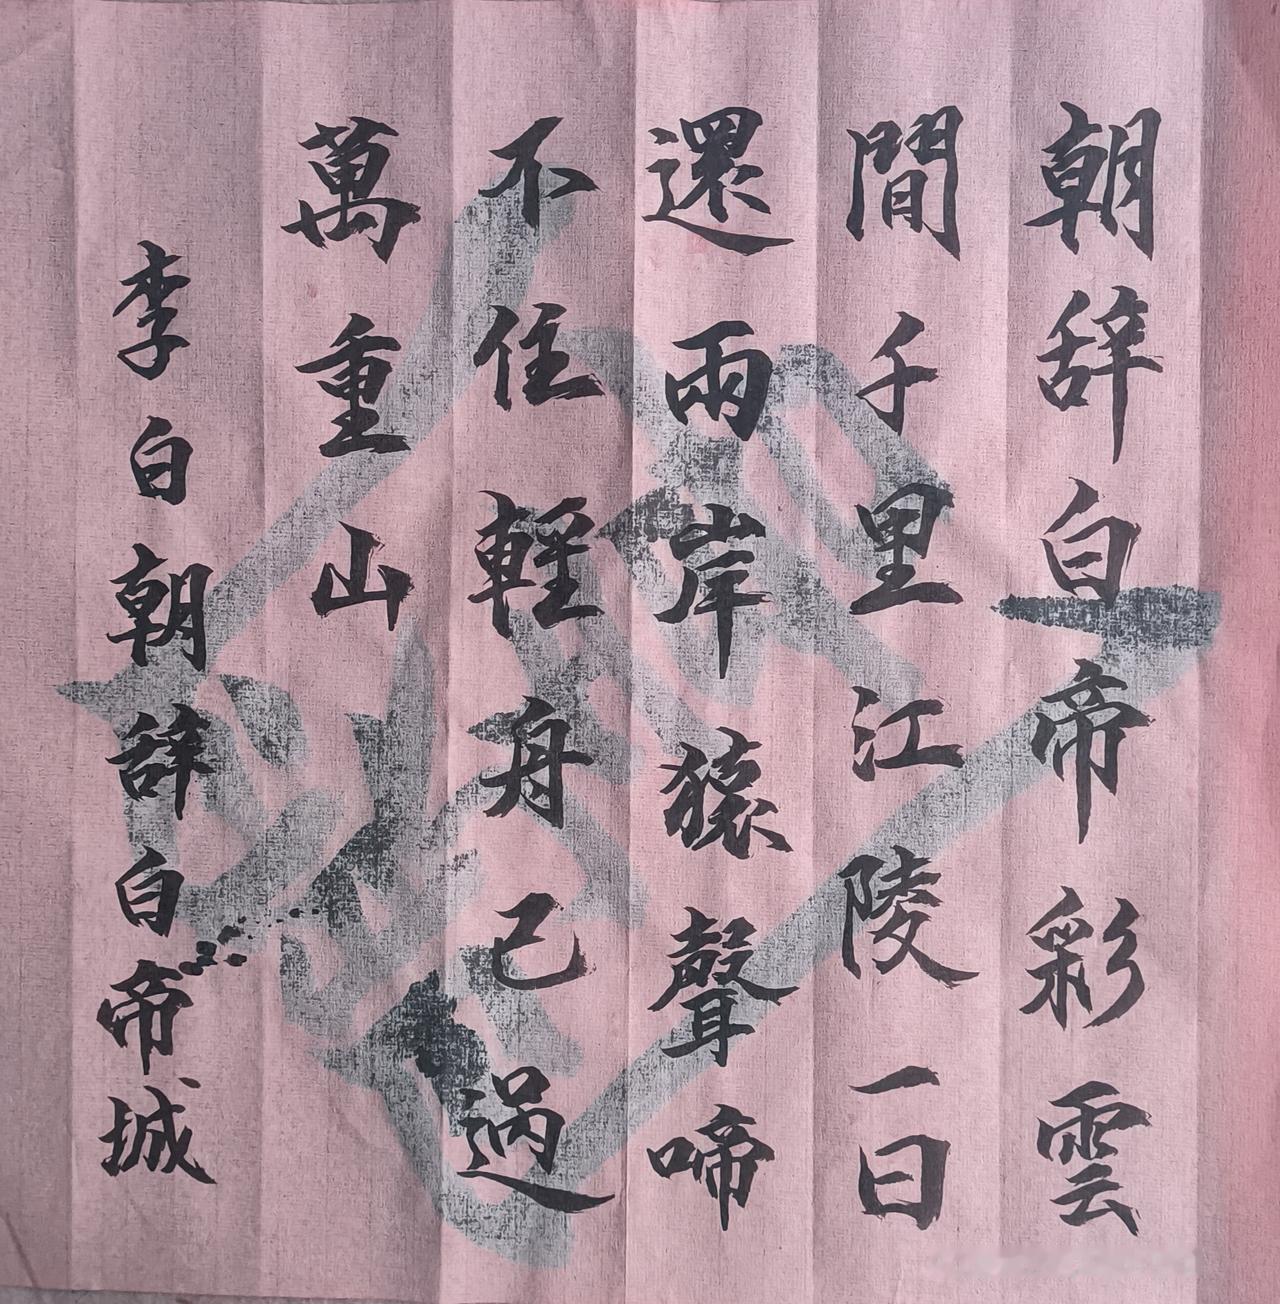 朝辞白帝彩雲
間千里江陵一日
還兩岸猿聲啼
不住輕舟已過
萬重山
李白朝辞白帝城